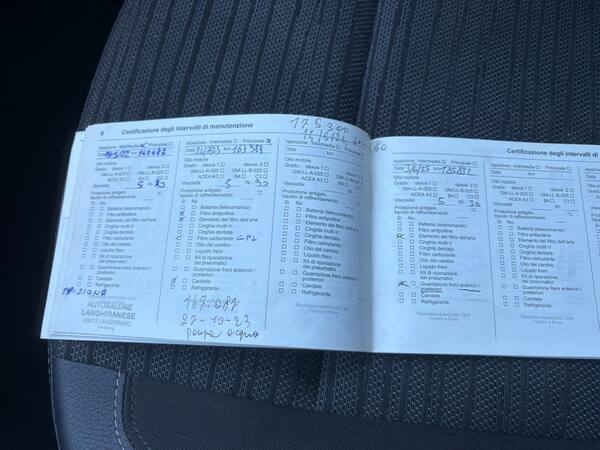 8 Certificazione degli intervalli di manutenzione
Ispezione: Intermedia Principale
Olio motore
Grado: dexos 1 dexos 2
GM-LL-A-025 GM-LL-B-025
ACEA A3 B4 C3
Viscosità: 5 W
Protezione antigelo,
liquido di raffreddamento: °C
Sì No
Batteria (telecomando)
Filtro antipolline
Elemento del filtro dell'aria
Cinghia multi-V
Cinghia dentata
Filtro carburante
Olio del cambio
Liquido freni
Kit di riparazione
dei pneumatici
Guarnizione freni anteriori /
posteriori
Candele
Refrigerante
AUTOSALONE
LANGHIRANESE
43013 LANGHIRANO
Ispezione: Intermedia Principale
Data 163388
Olio motore
Grado: dexos 1 dexos 2
GM-LL-A-025 GM-LL-B-025
ACEA A3 B4 C3
Viscosità: 5 W 30
Protezione antigelo,
liquido di raffreddamento: °C
Sì No
Batteria (telecomando)
Filtro antipolline
Elemento del filtro dell'aria
Cinghia multi-V
Cinghia dentata
Filtro carburante GPL
Olio del cambio
Liquido freni
Kit di riparazione
dei pneumatici
Guarnizione freni anteriori /
posteriori
Candele
Refrigerante
167-087
27-10-23
pompa acqua
175300
Ispezione: Intermedia Principale
Data km
Olio motore
Grado: dexos 1 dexos 2
GM-LL-A-025 GM-LL-B-025
ACEA A3 B4 C3
Viscosità:
Protezione antigelo,
liquido di raffreddamento: °C
Sì No
Batteria (telecomando)
Filtro antipolline
Elemento del filtro dell'aria
Cinghia multi-V
Cinghia dentata
Filtro carburante
Olio del cambio
Liquido freni
Kit di riparazione
dei pneumatici
Guarnizione freni anteriori /
posteriori
Candele
Refrigerante
Riparatore autorizzato Opel
Timbro e firma
Certificazione degli intervalli di
Ispezione: Intermedia Principale
Data 3/6/25
Olio motore
Grado: dexos 1 dexos 2
GM-LL-A-025 GM-LL-B-025
ACEA A3 B4 C3
Viscosità: 5 W 30
Protezione antigelo,
liquido di raffreddamento: °C
Sì No
Batteria (telecomando)
Filtro antipolline
Elemento del filtro dell'aria
Cinghia multi-V
Cinghia dentata
Filtro carburante
Olio del cambio
Liquido freni
Kit di riparazione
dei pneumatici
Guarnizione freni anteriori /
posteriori
Candele
Refrigerante
Riparatore autorizzato Opel
Timbro e firma
Ispezione: Intermedia
Data
Olio motore
Grado: dexos 1
GM-LL-A-025
ACEA A3
Viscosità:
Protezione antigelo,
liquido di raffreddamento:
Sì No
Batteria (telecomando)
Filtro antipolline
Elemento del filtro
Cinghia multi-V
Cinghia dentata
Filtro carburante
Olio del cambio
Liquido freni
Kit di riparazione
dei pneumatici
Guarnizione freni
posteriori
Candele
Refrigerante
Riparatore autorizzato
Timbro e firma